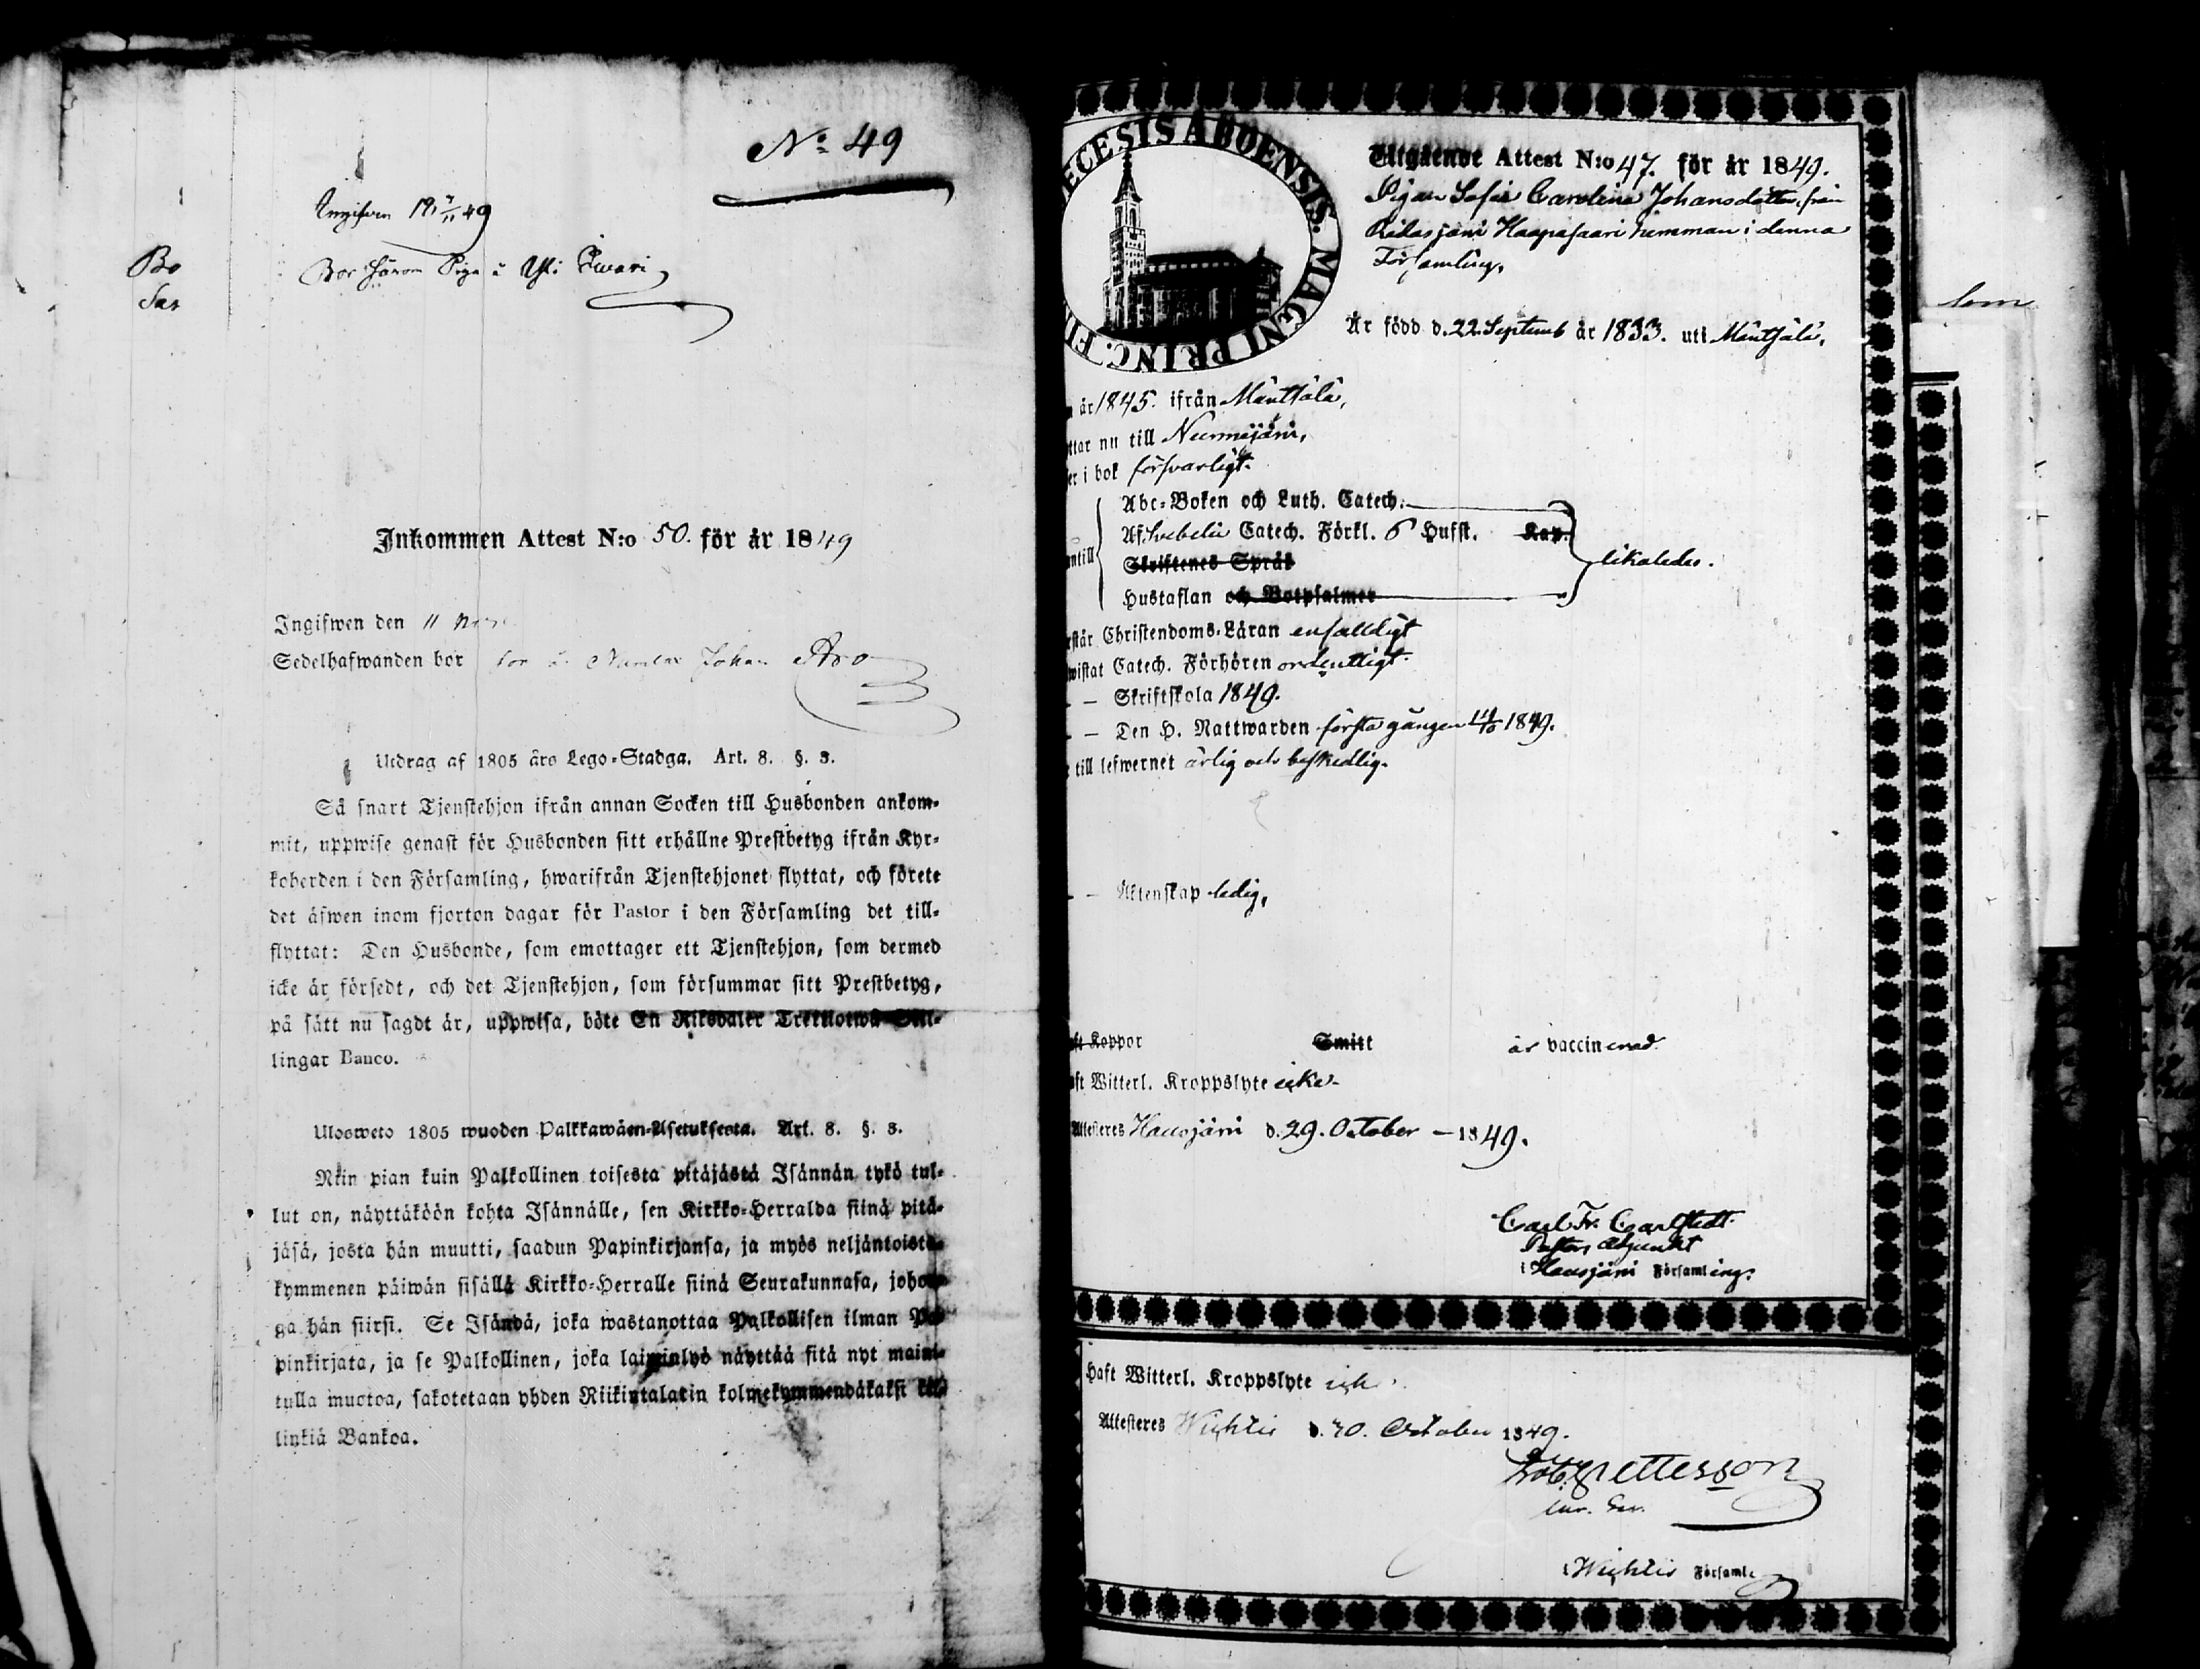 No 49
Ingifven 19 49
Bo
Sas
Inkommen Attest N:o 50. för år 1849
Ingifwen den 11
Sedelhafwanden bor Johan Aro
Utdrag af 1805 års Lego-Stadga. Art. 8. §. 3.
Så snart Tjenstehjon ifrån annan Socken till Husbonden ankom-
mit, uppwise genast för Husbonden sitt erhållne Prestbetyg ifrån Kyr-
koherden i den Församling, hwarifrån Tjenstehjonet flyttat, och förete
det äfwen inom fjorton dagar för Pastor i den Församling det till-
flyttat: Den Husbonde, som emottager ett Tjenstehjon, som dermed
icke är försedt, och det Tjenstehjon, som försummar sitt Prestbetyg,
på sätt nu sagdt är, uppwisa, böte En Riksdaler Trettiotwå Skil-
lingar Banco.
Ulosweto 1805 wuoden Palkkawäen-Asetuksesta. Art. 8. §. 3.
Niin pian kuin Palkollinen toisesta pitäjästä Isännän tykö tul-
lut on, näyttäköön kohta Isännälle, sen Kirkko-Herralda siinä pitä-
jäsä, josta hän muutti, saadun Papinkirjansa, ja myös neljäntoista-
kymmenen päiwän sisällä Kirkko-Herralle siinä Seurakunnasa, johon-
ga hän siirsi. Se Isändä, joka wastanottaa Palkollisen ilman Pa-
pinkirjata, ja se Palkollinen, joka laiminlyö näyttää sitä nyt maini-
tulla muotoa, sakotetaan yhden Riikintalarin kolmekymmendäkaksi kil-
linkiä Bankoa.
ECESIS ABOENSIS. MAGNI PRINC. FIN
Utgående Attest N:o 47. för år 1849.
Pigan Sofia Carolina Johansdotter, från
Ridasjärvi Haapasaari hemman i denna
Församling,
Är född d. 22. Septemb år 1833. uti Mäntsälä,
år 1845. ifrån Mäntsälä,
ttar nu till Nurmijärvi,
er i bok försvarligt.
Abc-Boken och Luth. Catech.
Af. Svebelii Catech. Förkl. 6 Hufst. Kap.
antill Skriftenes Språk likaledes.
Hustaflan och Botpsalmer
rstår Christendoms-Läran enfalldigt
wistat Catech. Förhören ordentligt.
– – Skriftskola 1849.
– – Den H. Nattwarden första gången 14/10 1849.
till lefwernet ärlig och beskedlig.
– – Äktenskap ledig,
aft Koppor Smitt är vaccinerad.
aft Witterl. Kroppslyte icke.
Attesteres Hausjärvi d. 29. October – 1849.
Carl Fr. Carlstedt.
Pastors Adjunkt
i Hausjärvi Församling.
Haft Witterl. Kroppslyte icke.
Attesteres Wichtis d. 30. October 1849.
Pettersson
i Wichtis Församl.
som